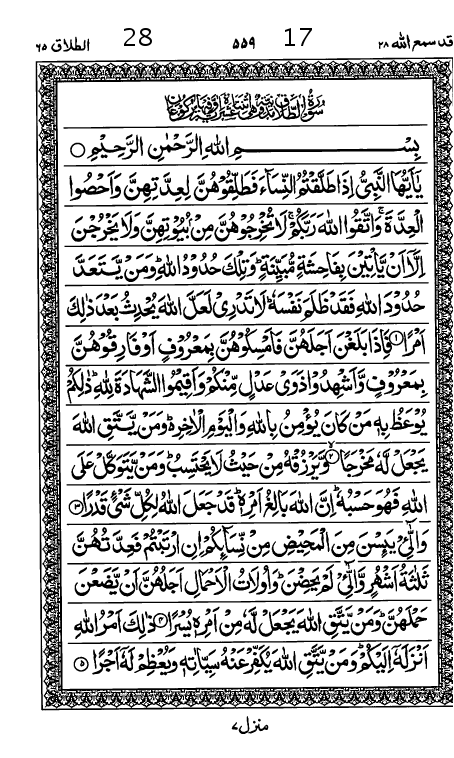 قد سمع الله ٢٨ 17 ٥٥٩ 28 الطلاق ٦٥
بِسْمِ اللهِ الرَّحْمٰنِ الرَّحِيْمِ ○
يٰۤاَيُّهَا النَّبِيُّ اِذَا طَلَّقْتُمُ النِّسَآءَ فَطَلِّقُوْهُنَّ لِعِدَّتِهِنَّ وَاَحْصُوا
الْعِدَّةَ ۚ وَاتَّقُوا اللهَ رَبَّكُمْ ۚ لَا تُخْرِجُوْهُنَّ مِنْۢ بُيُوْتِهِنَّ وَلَا يَخْرُجْنَ
اِلَّاۤ اَنْ يَّاْتِيْنَ بِفَاحِشَةٍ مُّبَيِّنَةٍ ؕ وَتِلْكَ حُدُوْدُ اللهِ ؕ وَمَنْ يَّتَعَدَّ
حُدُوْدَ اللهِ فَقَدْ ظَلَمَ نَفْسَهٗ ؕ لَا تَدْرِيْ لَعَلَّ اللهَ يُحْدِثُ بَعْدَ ذٰلِكَ
اَمْرًا ﴿١﴾ فَاِذَا بَلَغْنَ اَجَلَهُنَّ فَاَمْسِكُوْهُنَّ بِمَعْرُوْفٍ اَوْ فَارِقُوْهُنَّ
بِمَعْرُوْفٍ وَّاَشْهِدُوْا ذَوَيْ عَدْلٍ مِّنْكُمْ وَاَقِيْمُوا الشَّهَادَةَ لِلّٰهِ ؕ ذٰلِكُمْ
يُوْعَظُ بِهٖ مَنْ كَانَ يُؤْمِنُ بِاللهِ وَالْيَوْمِ الْاٰخِرِ ؕ وَمَنْ يَّتَّقِ اللهَ
يَجْعَلْ لَّهٗ مَخْرَجًا ﴿٢﴾ وَّيَرْزُقْهُ مِنْ حَيْثُ لَا يَحْتَسِبُ ؕ وَمَنْ يَّتَوَكَّلْ عَلَى
اللهِ فَهُوَ حَسْبُهٗ ؕ اِنَّ اللهَ بَالِغُ اَمْرِهٖ ؕ قَدْ جَعَلَ اللهُ لِكُلِّ شَيْءٍ قَدْرًا ﴿٣﴾
وَالّٰٓـِٔيْ يَئِسْنَ مِنَ الْمَحِيْضِ مِنْ نِّسَآئِكُمْ اِنِ ارْتَبْتُمْ فَعِدَّتُهُنَّ
ثَلٰثَةُ اَشْهُرٍ ۙ وَّالّٰٓـِٔيْ لَمْ يَحِضْنَ ؕ وَاُولَاتُ الْاَحْمَالِ اَجَلُهُنَّ اَنْ يَّضَعْنَ
حَمْلَهُنَّ ؕ وَمَنْ يَّتَّقِ اللهَ يَجْعَلْ لَّهٗ مِنْ اَمْرِهٖ يُسْرًا ﴿٤﴾ ذٰلِكَ اَمْرُ اللهِ
اَنْزَلَهٗۤ اِلَيْكُمْ ؕ وَمَنْ يَّتَّقِ اللهَ يُكَفِّرْ عَنْهُ سَيِّاٰتِهٖ وَيُعْظِمْ لَهٗۤ اَجْرًا ﴿٥﴾
منزل ٧